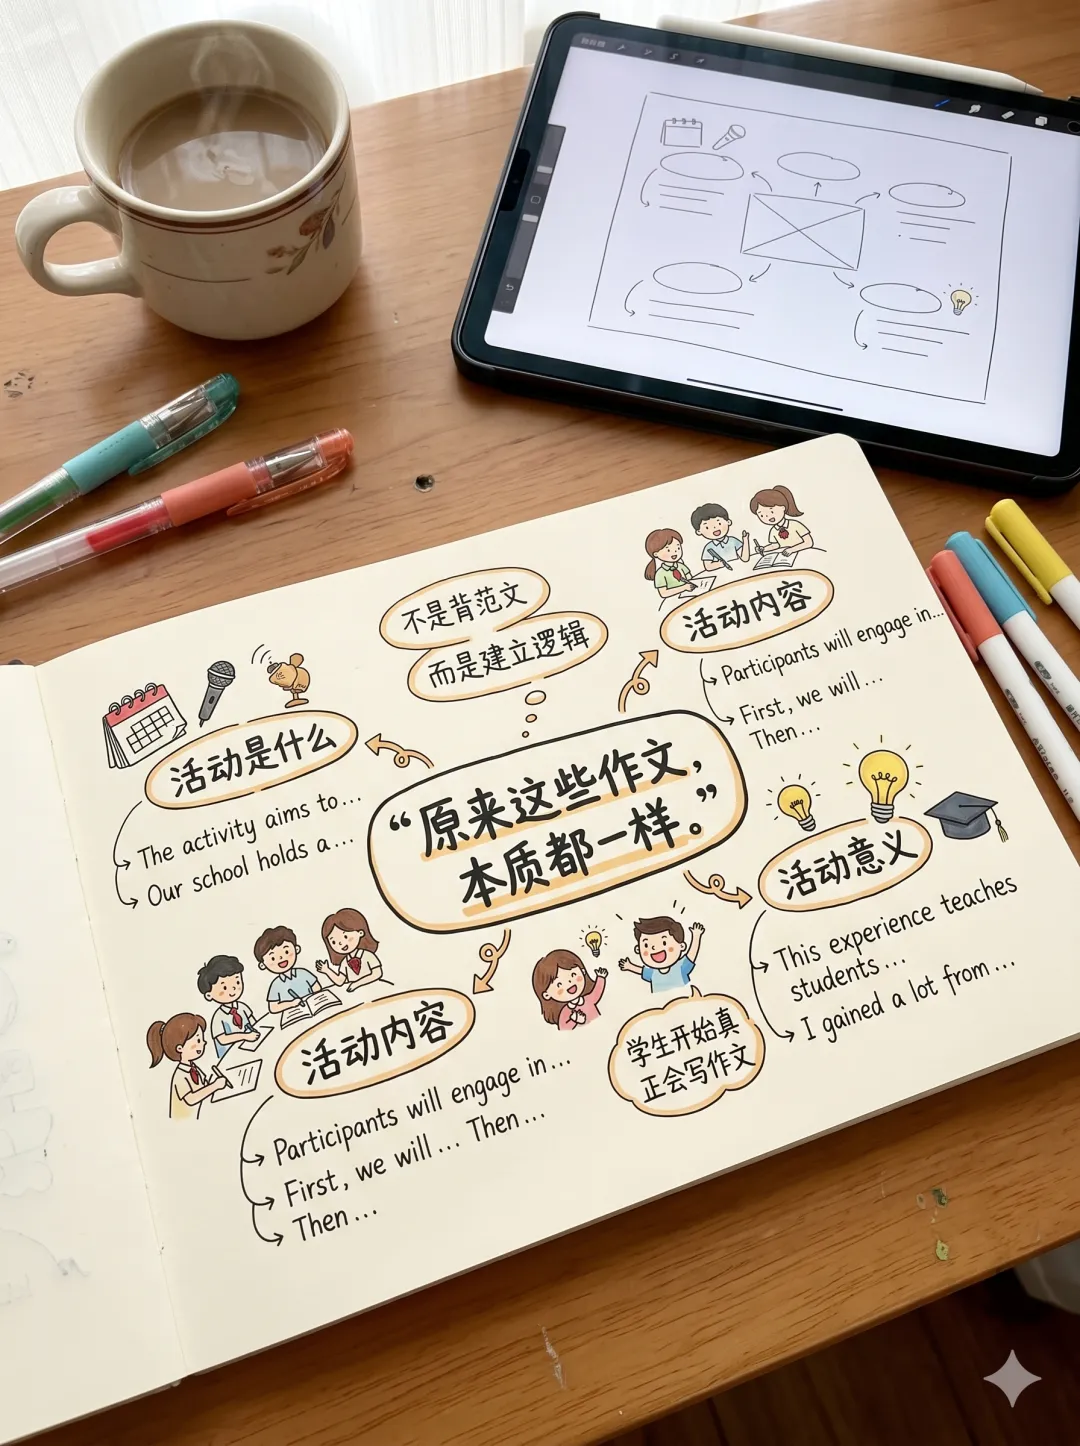 不是背范文
而是建立逻辑
活动内容
Participants will engage in...
First, we will...
Then...
活动是什么
The activity aims to...
Our school holds a...
“原来这些作文,
本质都一样。”
活动意义
This experience teaches
students...
I gained a lot from...
活动内容
Participants will engage in...
First, we will... Then...
Then...
学生开始真
正会写作文